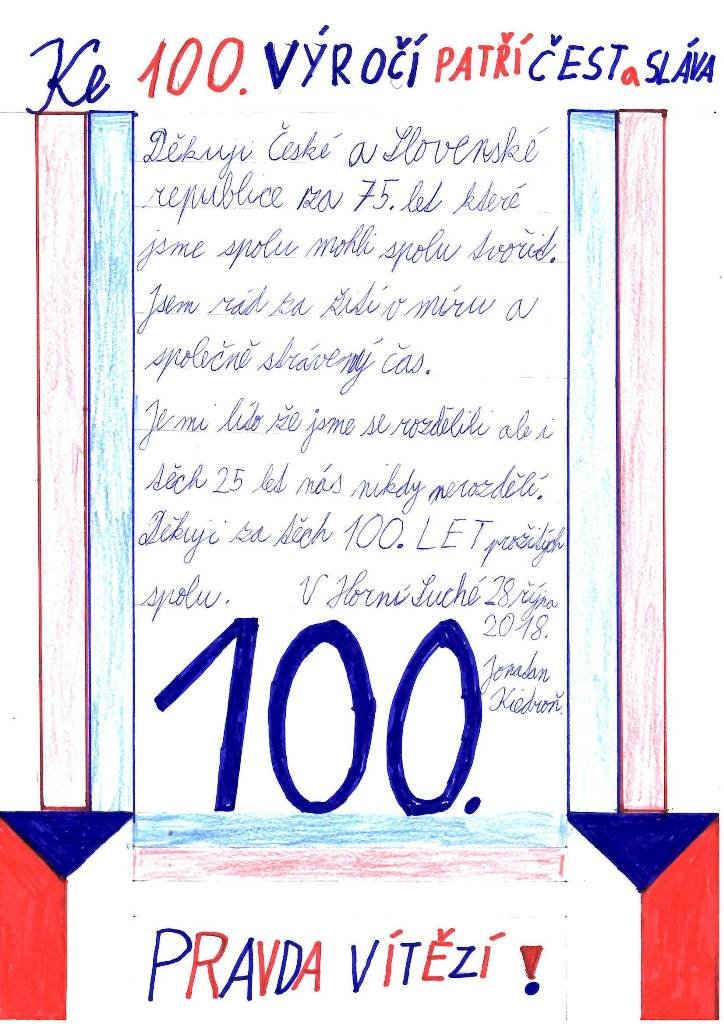 Ke 100. VÝROČÍ PATŘÍ ČEST a SLÁVA
Děkuji České a Slovenské
republice za 75. let které
jsme spolu mohli spolu tvořit.
Jsem rád za žití v míru a
společně strávený čas.
Je mi líto že jsme se rozdělili ale i
těch 25 let nás nikdy nerozdělí.
Děkuji za těch 100. LET prožitých
spolu. V Horní Suché 28 října
2018.
Jonatan
Kiedroň.
100.
PRAVDA VÍTĚZÍ !